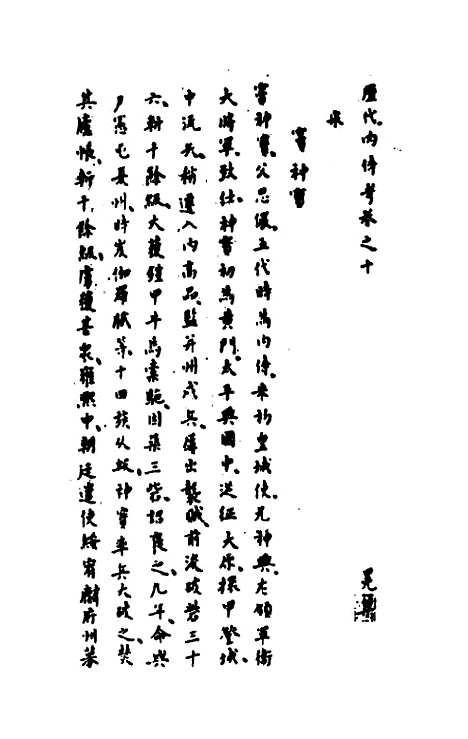 歷代內侍考卷之十
宋
竇神寶
竇神寶父思儼五代時爲內侍宋初皇城使兄神興左領軍衛
大將軍致仕神寶初爲黃門太平興國中從征太原擐甲登城
中流矢稍遷入內高品監并州戍兵屢出襲賊前後破砦三十
六斬千餘級大獲鎧甲牛馬橐駞因築三砦詔褒之九年命與
尹憲屯夏州時岌伽羅膩等十四族久叛神寶率兵大破之焚
其廬帳斬千餘級虜獲甚衆雍熙中朝廷遣使綏宥麟府州募